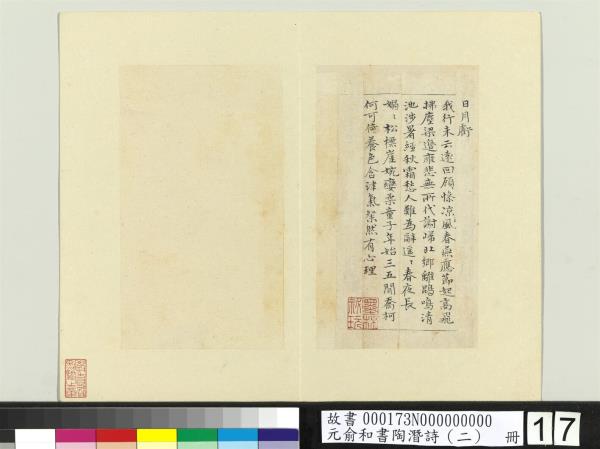 日月虧
我行未云遠回顧慘涼風春燕應節起高飛
拂塵梁邊雁悲無所代謝歸北鄉離鵾鳴清
池涉暑經秋霜愁人難為辭遙遙春夜長
嫋嫋松標崖婉孌柔童子年始三五間喬柯
何可倚養色含津氣粲然有心理
故書 000173N000000000
元俞和書陶潛詩(二) 冊
17